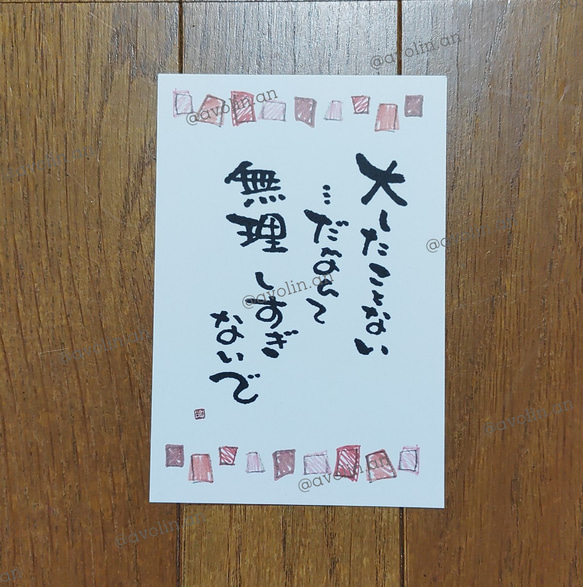 大したことない
…だなんて
無理しすぎ
ないで
@avolin.an
@avolin.an
@avolin.an
@avolin.an
@avolin.an
@avolin.an